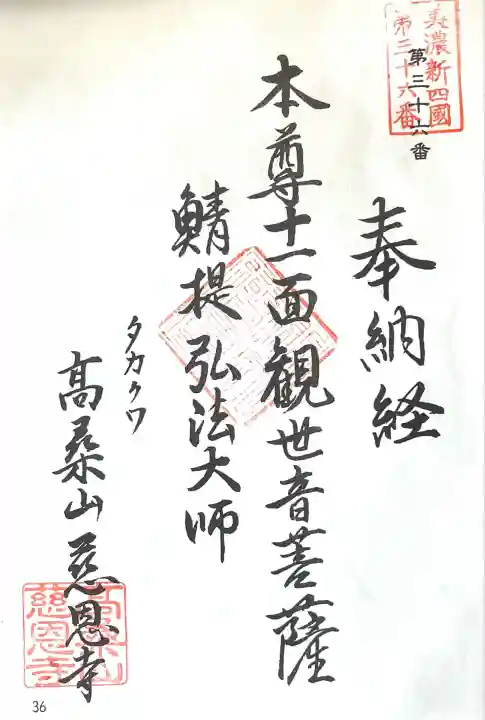 美濃新四國
第三十六番
第三十六番
奉納経
本尊十一面観世音菩薩
鯖提弘法大師
タカクワ
髙桑山慈恩寺
髙桑山
慈恩寺
36